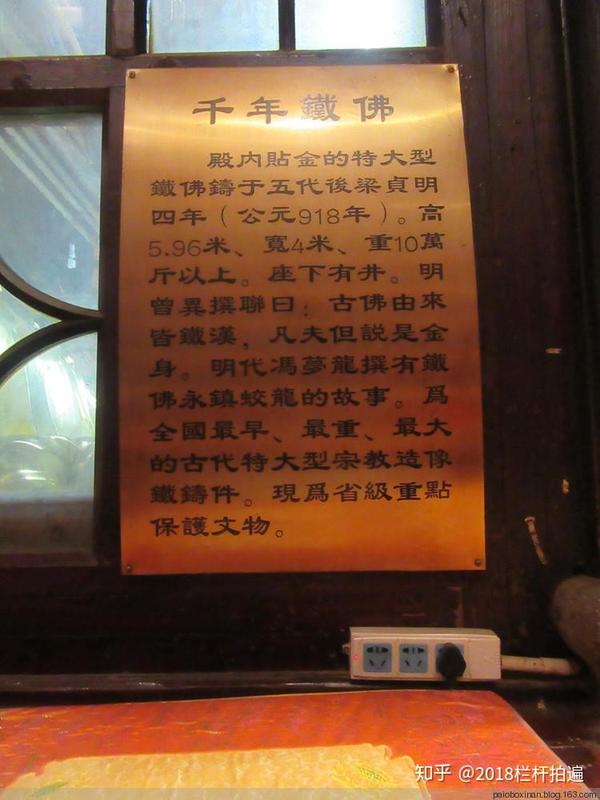 千年鐵佛
殿内貼金的特大型
鐵佛鑄于五代後梁貞明
四年（公元918年）。高
5.96米、寬4米、重10萬
斤以上。座下有井。明
曾異撰聯曰：古佛由來
皆鐵漢，凡夫但説是金
身。明代馮夢龍撰有鐵
佛永鎮蛟龍的故事。爲
全國最早、最重、最大
的古代特大型宗教造像
鐵鑄件。現爲省級重點
保護文物。
知乎 @2018栏杆拍遍
paioboxinan.blog.163.com